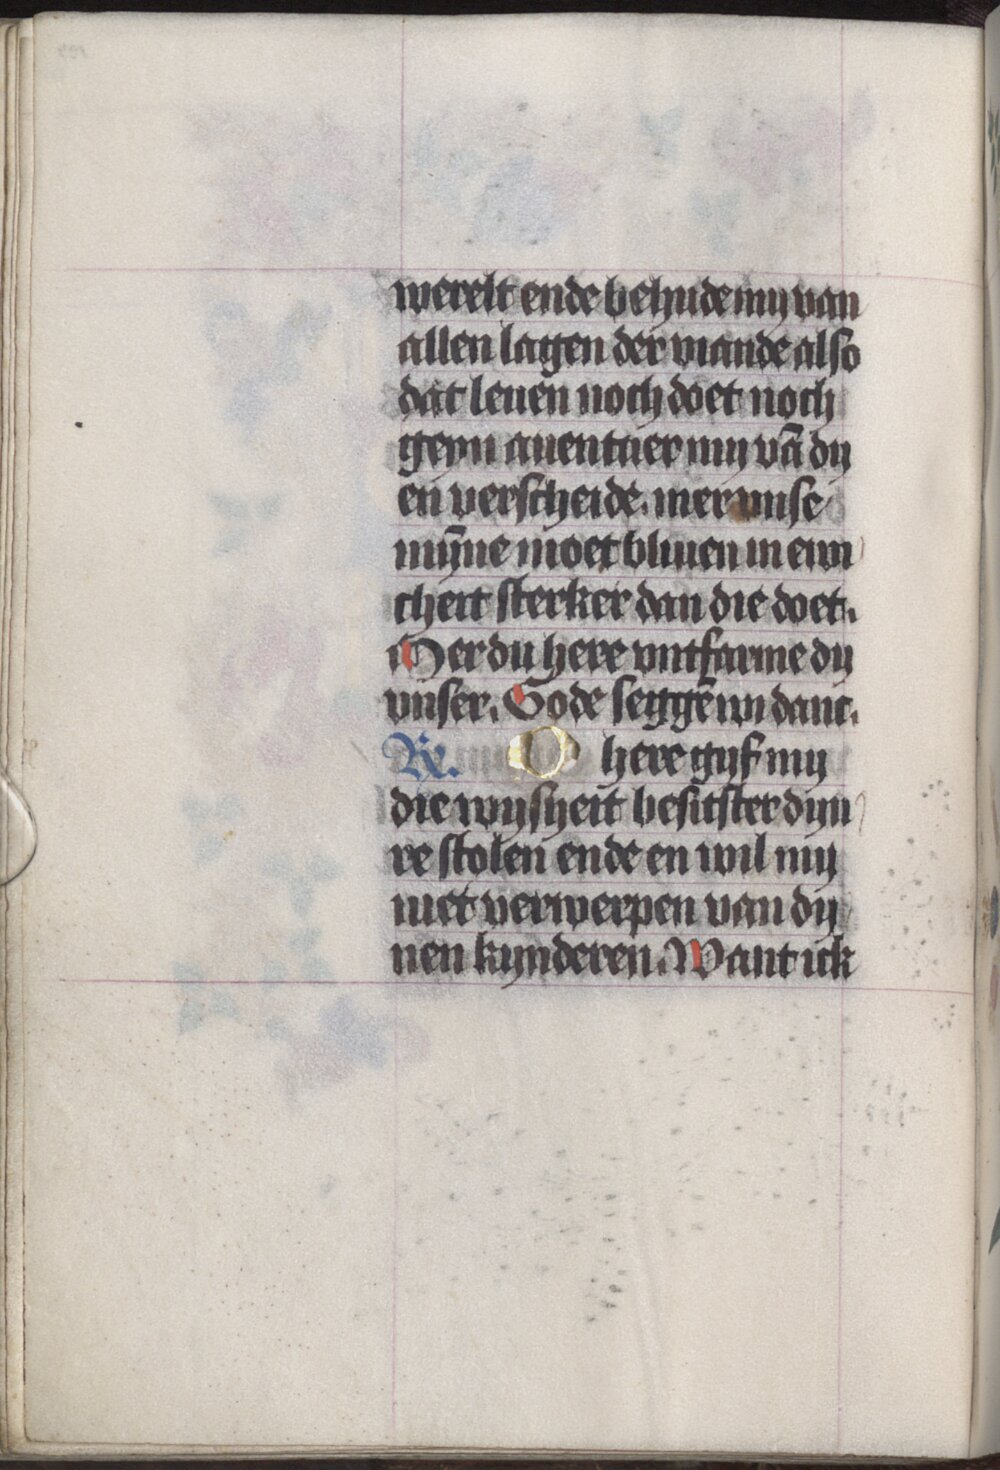 werelt ende behude my van
allen lagen der viande also
dat leuen noch doet noch
geyn auentuer my vā dy
en verscheide. mer vnse
mȳne moet bliuen in ewi
cheit sterker dan die doet.
Mer du here vntfarme dy
vnser. Gode seggē wi danc.
R. O here gyf my
die wysheit besitster dyn
re stolen ende en wil my
niet verwerpen van dy
nen kynderen. Want ick